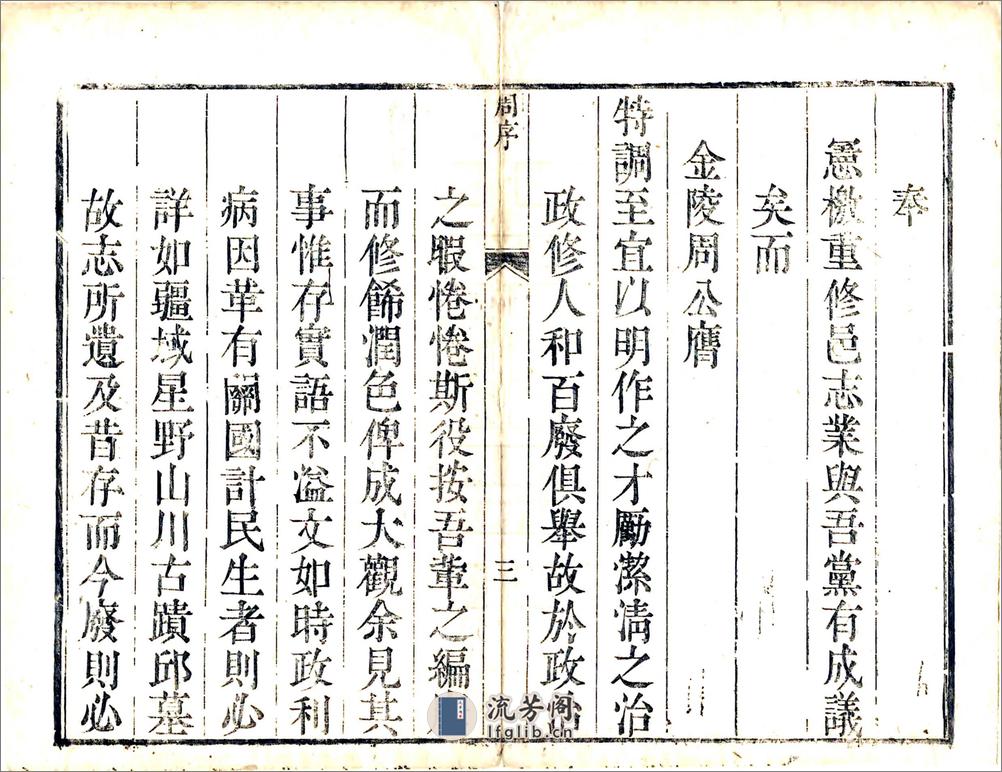 奉
憲檄重修邑志業與吾黨有成議
矣而
金陵周公膺
特調至宜以明作之才勵潔清之治
政修人和百廢俱舉故於政治
周序
三
之暇惓惓斯役按吾輩之編
而修餙潤色俾成大觀余見其
事惟存實語不溢文如時政利
病因革有關國計民生者則必
詳如疆域星野山川古蹟邱墓
故志所遺及昔存而今廢則必
流芳阁
lfglib.cn